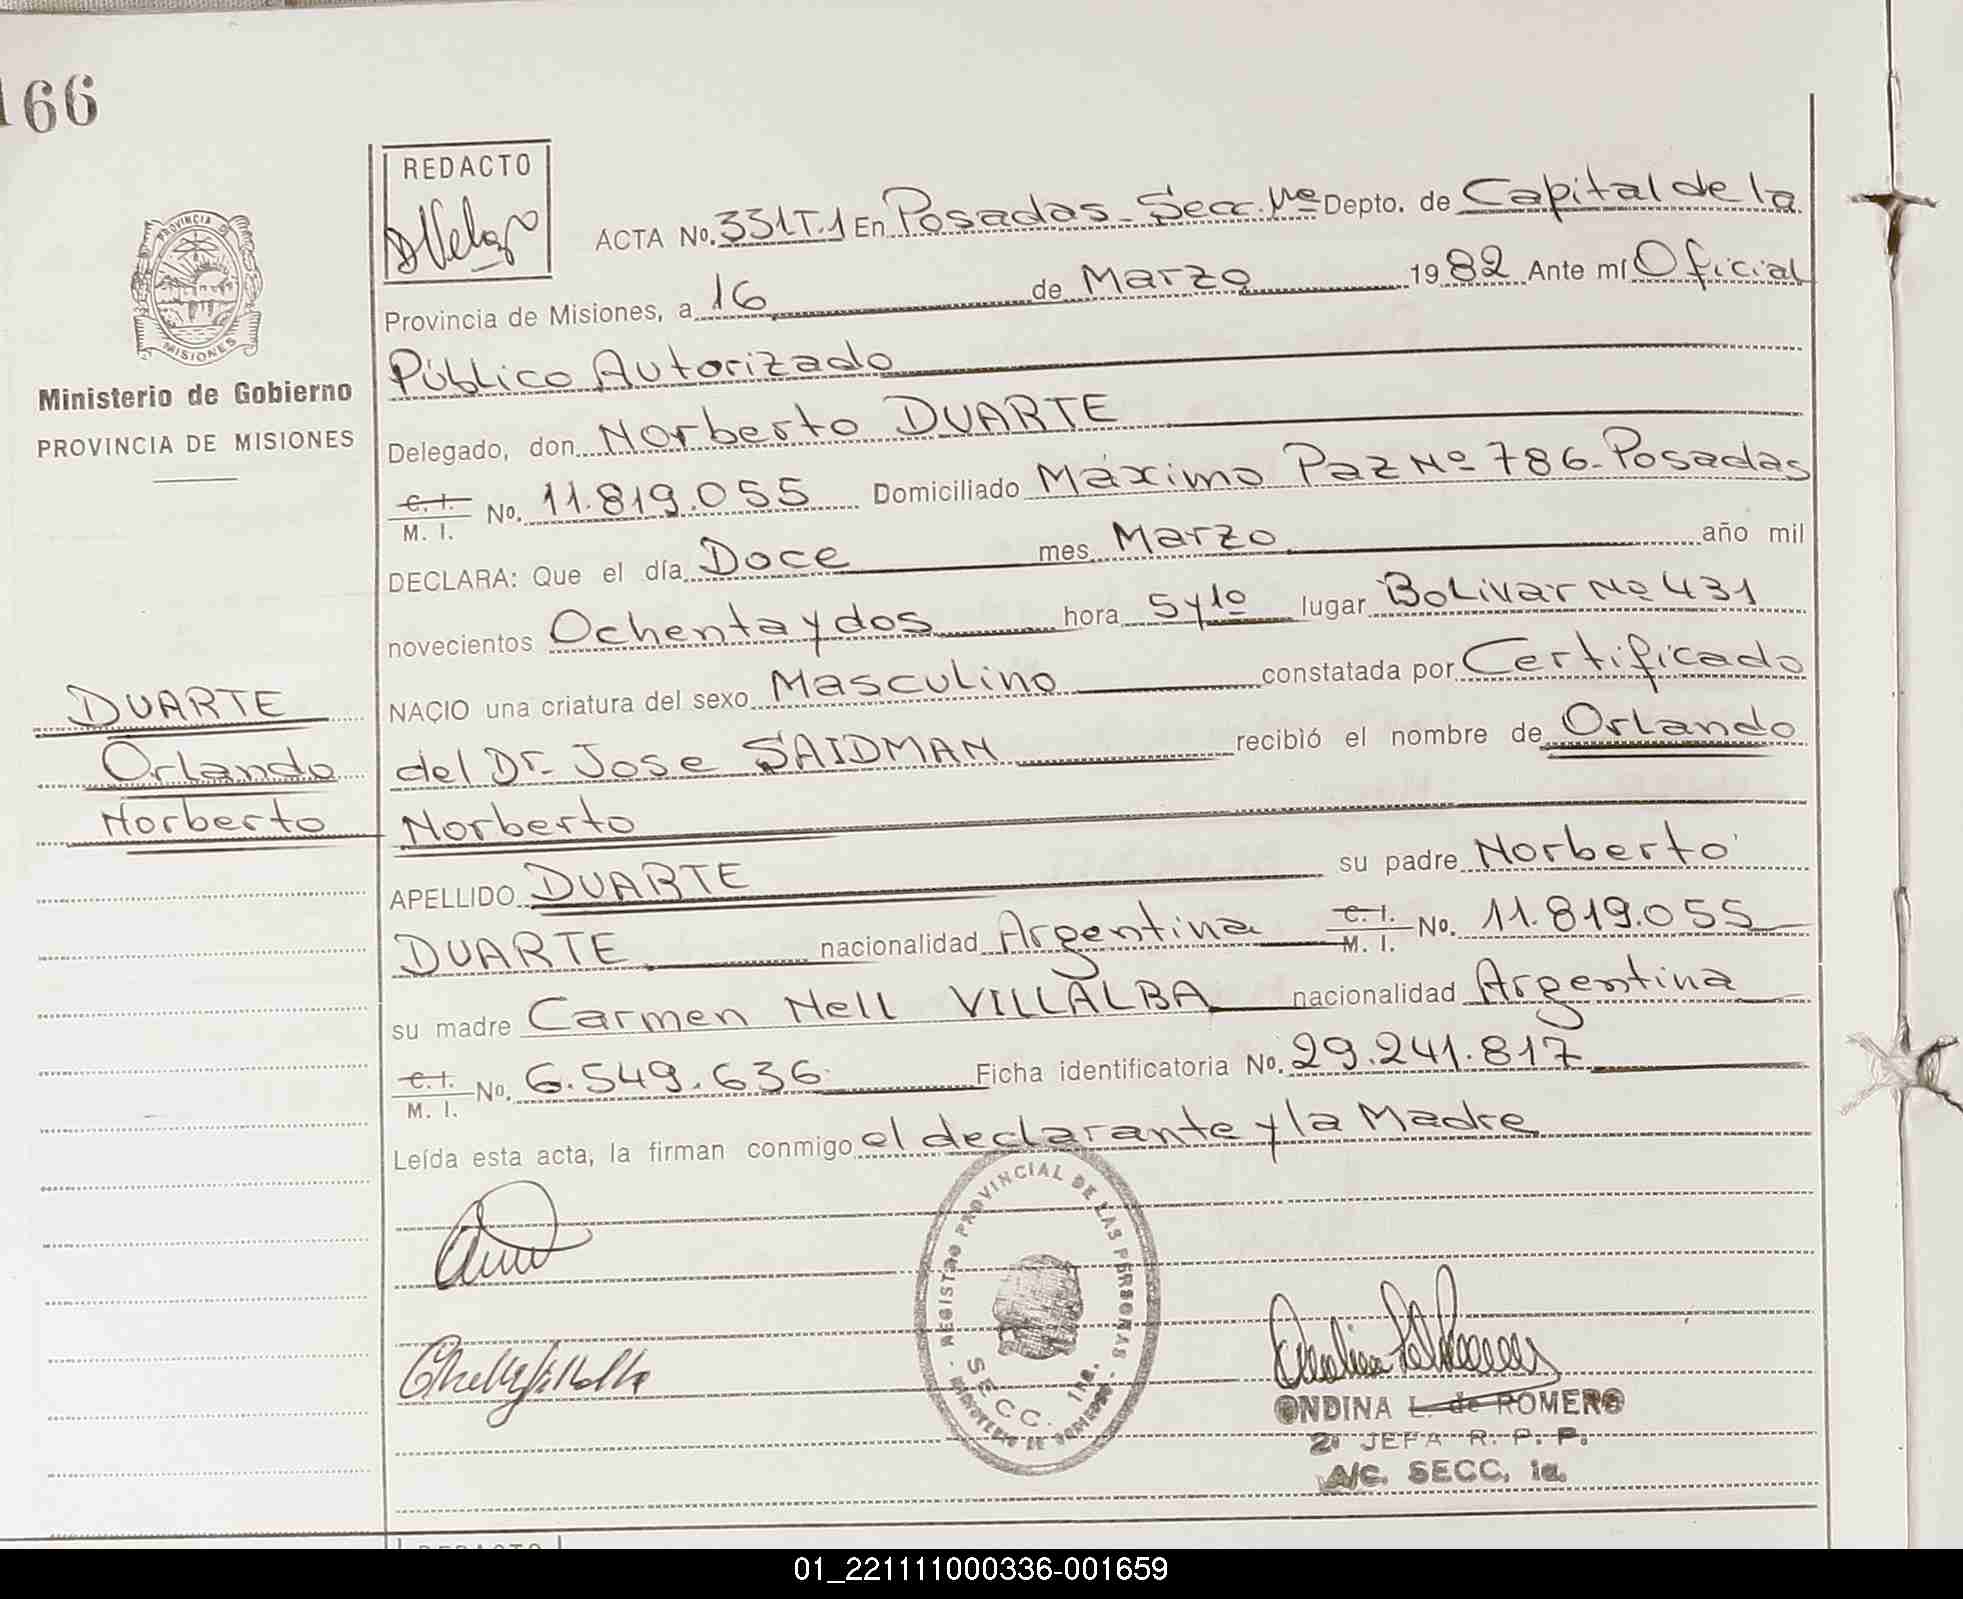 166
REDACTO
PROVINCIA DE
MISIONES
Ministerio de Gobierno
PROVINCIA DE MISIONES
DUARTE
Orlando
Norberto
ACTA No. 331T.1 En Posadas - Secc. Depto. de Capital de la
Provincia de Misiones, a 16 de Marzo 1982 Ante mí Oficial
Público Autorizado
Delegado, don Norberto DUARTE
C. I. M. I. No. 11.819.055 Domiciliado Máximo Paz Nº 786 - Posadas
DECLARA: Que el día Doce mes Marzo año mil
novecientos Ochenta y dos hora 5 y 10 lugar Bolivar Nº 431
NACIO una criatura del sexo Masculino constatada por Certificado
del Dr. Jose SAIDMAN recibìó el nombre de Orlando
Norberto
APELLIDO DUARTE su padre Norberto
DUARTE nacionalidad Argentina C. I. M. I. No. 11.819.055
su madre Carmen Nell VILLALBA nacionalidad Argentina
C. I. M. I. No. 6.549.636 Ficha identificatoria No. 29.241.817
Leída esta acta, la firman conmigo el declarante y la Madre
REGISTRO PROVINCIAL DE LAS PERSONAS
SECC. 1ra.
MINISTERIO DE GOBIERNO
ONDINA L. de ROMERO
2º JEFA R. P. P.
A/C. SECC, 1a.
REDACTO
01_221111000336-001659